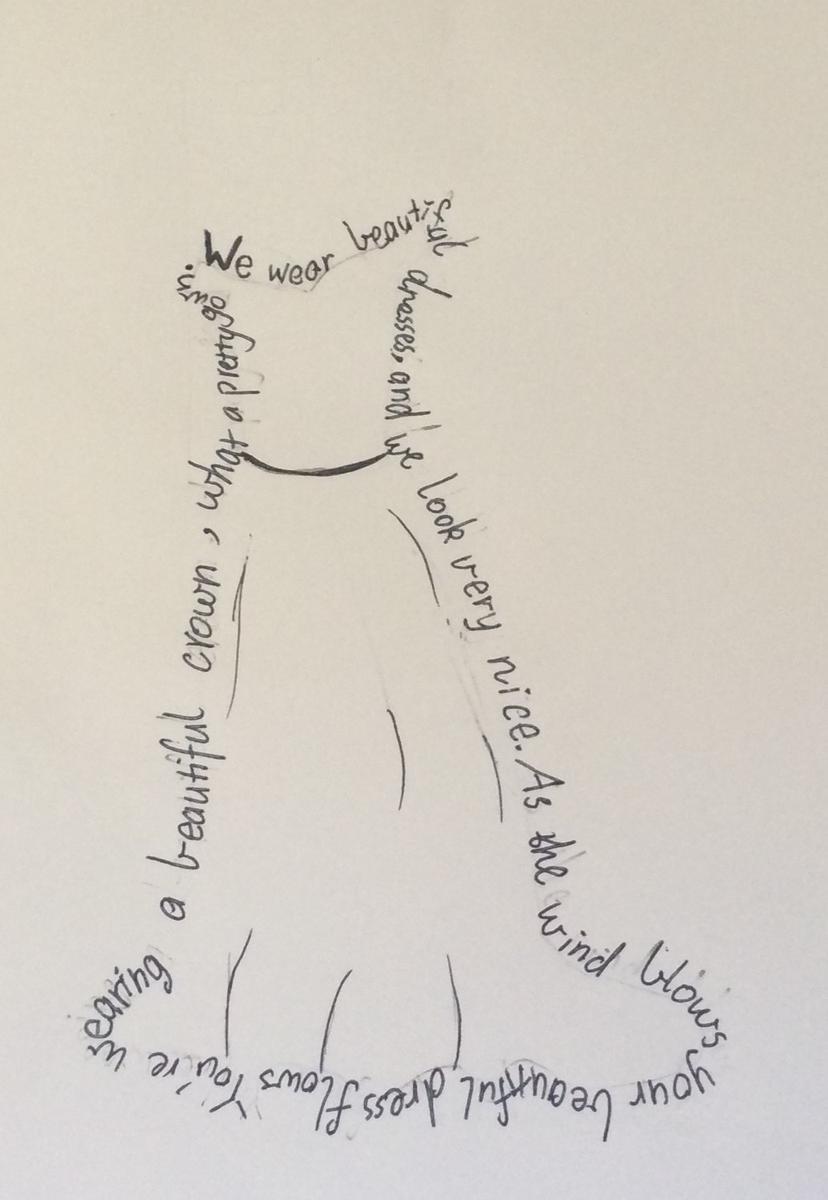 We wear beautiful dresses, and we look very nice. As the wind blows your beautiful dress flows You're wearing a beautiful crown, what a pretty gown.